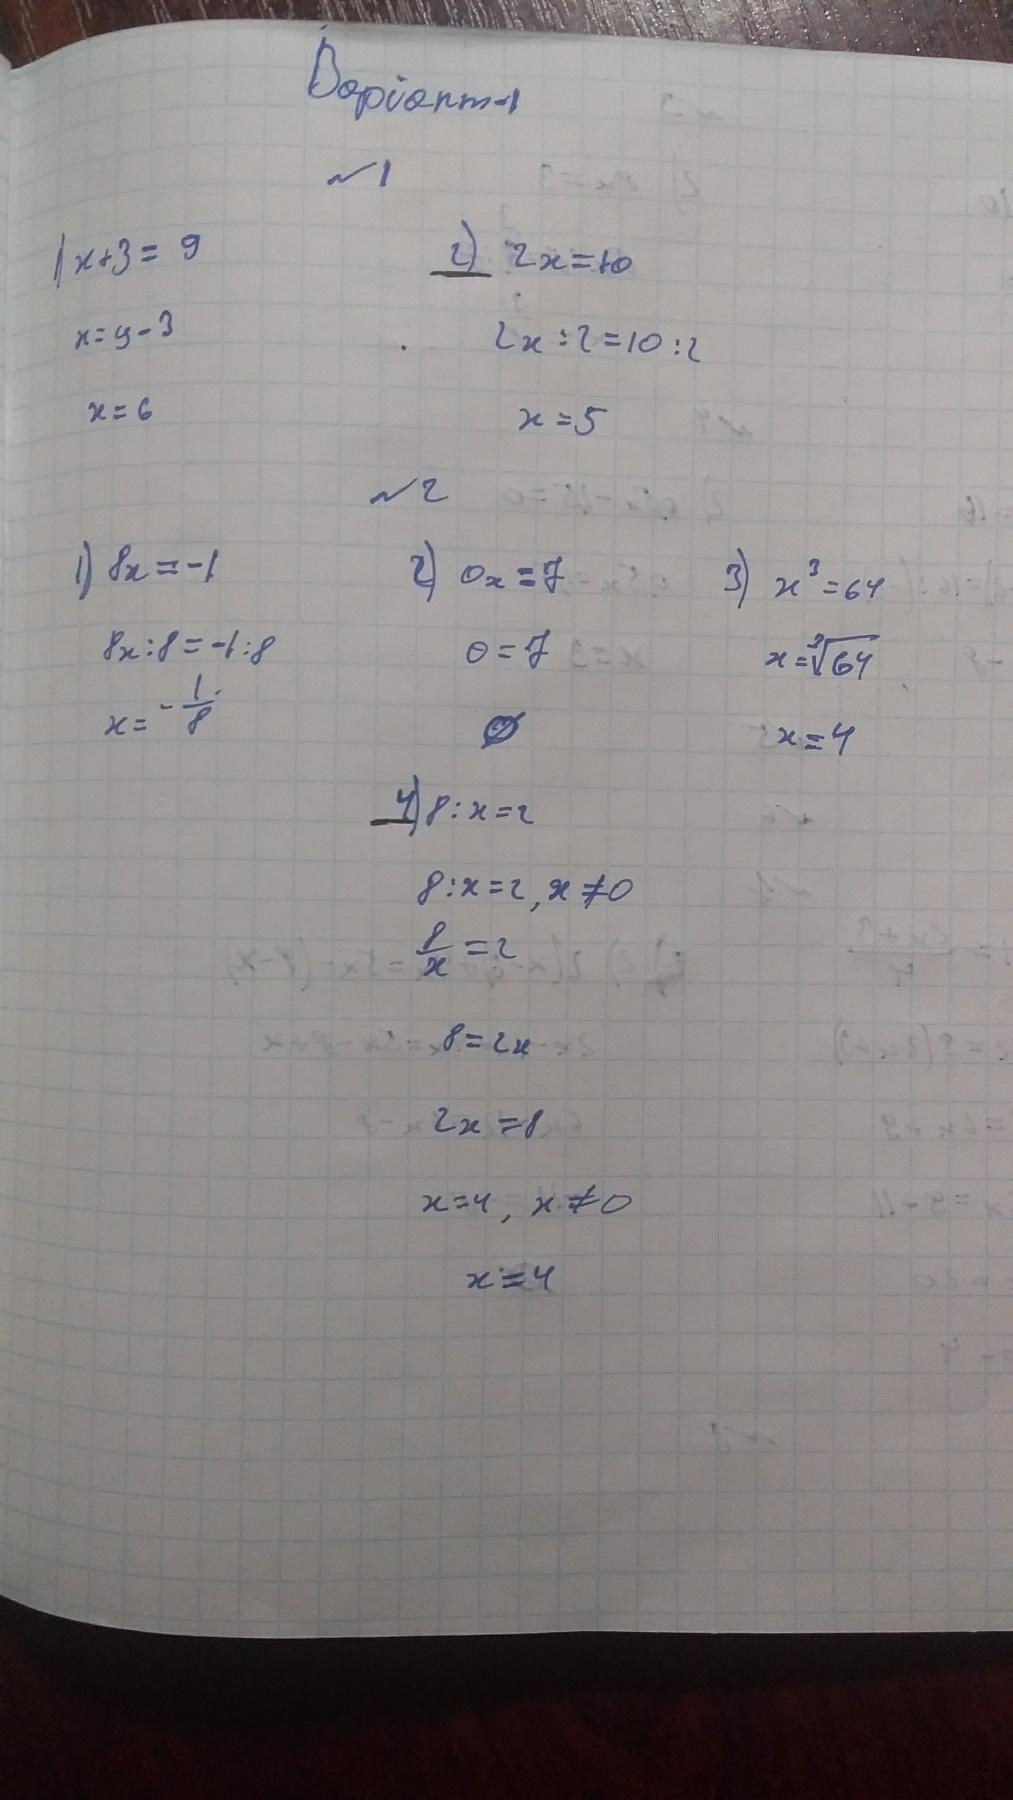 Варіант-1
№1
1) x+3 = 9
x=9-3
x=6
2) 2x=10
2x:2=10:2
x=5
№2
1) 8x=-1
8x:8=-1:8
x=-1/8
2) 0x=7
0=7
∅
3) x³=64
x=∛64
x=4
4) 8:x=2
8:x=2, x≠0
8/x=2
8=2x
2x=8
x=4, x≠0
x=4